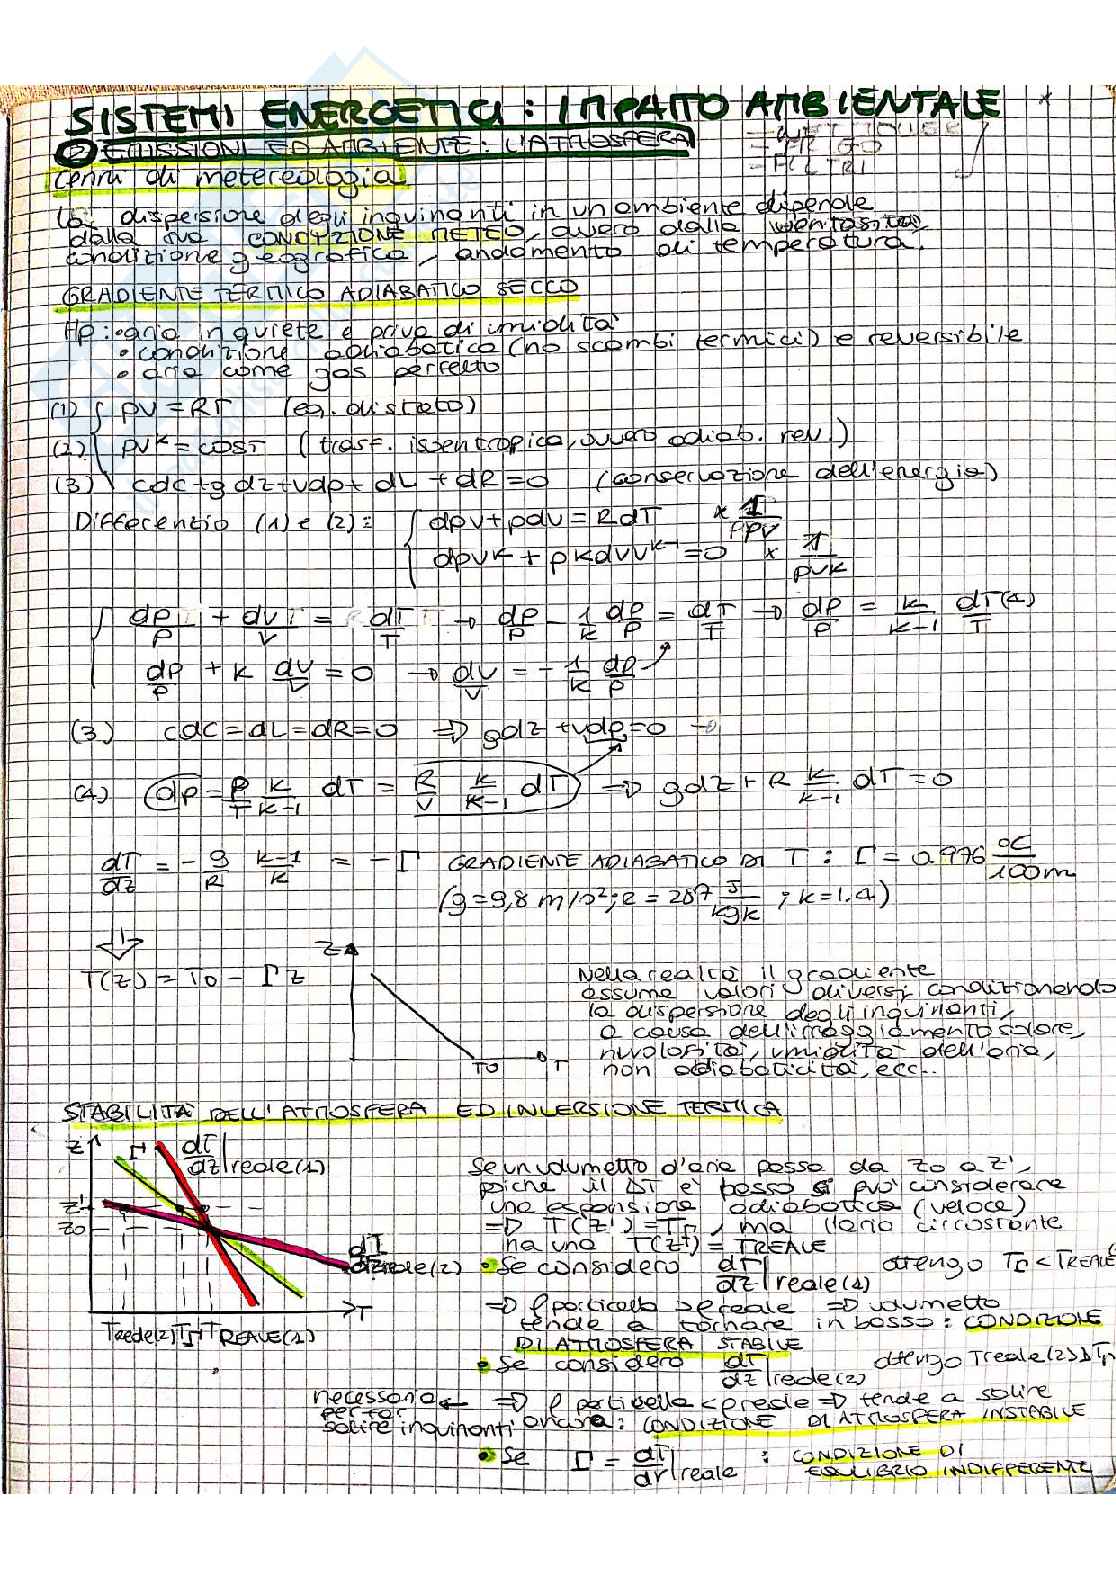 SISTEMI ENERGETICI: IMPATTO AMBIENTALE
② EMISSIONI ED AMBIENTE: L'ATMOSFERA
FILTRI
Cenni di metereologia
La dispersione degli inquinanti in un ambiente dipende
dalla sua CONDIZIONE METEO, ovvero dalla ventosità,
condizione geografica, andamento di temperatura.
GRADIENTE TERMICO ADIABATICO SECCO
Hp: • aria in quiete e priva di umidità
• condizione adiabatica (no scambi termici) e reversibile
• aria come gas perfetto
(1) { pv = RT (eq. di stato)
(2) { pv^k = COST (trasf. isentropica, ovvero adiab. rev.)
(3) { cdc + g dz + vdp + dL + dR = 0 (conservazione dell'energia)
Differenzio (1) e (2): { dpv + pdv = RdT × 1/pv
dpv^k + pkdvv^k-1 = 0 × 1/pv^k
{ dp/p + dv/v = dT/T → dp/p - 1/k dp/p = dT/T → dp/p = k/k-1 dT/T (4)
dp/p + k dv/v = 0 → dv/v = - 1/k dp/p
(3) cdc = dL = dR = 0 ⇒ gdz + vdp = 0 →
(4) dp = p/T k/k-1 dT = R/v k/k-1 dT ⇒ gdz + R k/k-1 dT = 0
dT/dz = - g/R k-1/k = - Γ GRADIENTE ADIABATICO DI T: Γ = 0.976 °C/100m
(g = 9,8 m/s²; R = 287 J/kgK ; k = 1.4)
T(z) = T0 - Γ z
z
T0 T
Nella realtà il gradiente
assume valori diversi condizionando
la dispersione degli inquinanti,
a causa dell'irraggiamento solare,
nuvolosità, umidità dell'aria,
non adiabaticità, ecc..
STABILITÀ DELL'ATMOSFERA ED INVERSIONE TERMICA
z Γ dT/dz|reale(1)
z'
z0
dT/dz|reale(2)
T
Treale(2) TΓ TREALE(1)
Se un volumetto d'aria passa da z0 a z',
poichè il ΔT è basso si può considerare
una espansione adiabatica (veloce)
⇒ T(z') = TΓ, ma l'aria circostante
ha una T(z') = TREALE
• Se considero dT/dz|reale(1) ottengo TΓ < TREALE(
⇒ ρparticella > ρreale ⇒ volumetto
tende a tornare in basso: CONDIZIONE
DI ATMOSFERA STABILE
• Se considero dT/dz|reale(2) ottengo Treale(2) > TΓ
⇒ ρ particella < ρreale ⇒ tende a salire
ancora: CONDIZIONE DI ATMOSFERA INSTABILE
necessario ←
per far
salire inquinanti
• Se Γ = dT/dr|reale : CONDIZIONE DI
EQUILIBRIO INDIFFERENTE